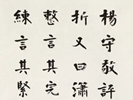 楊守敬評
折又曰瀟
整言其完
練言其緊